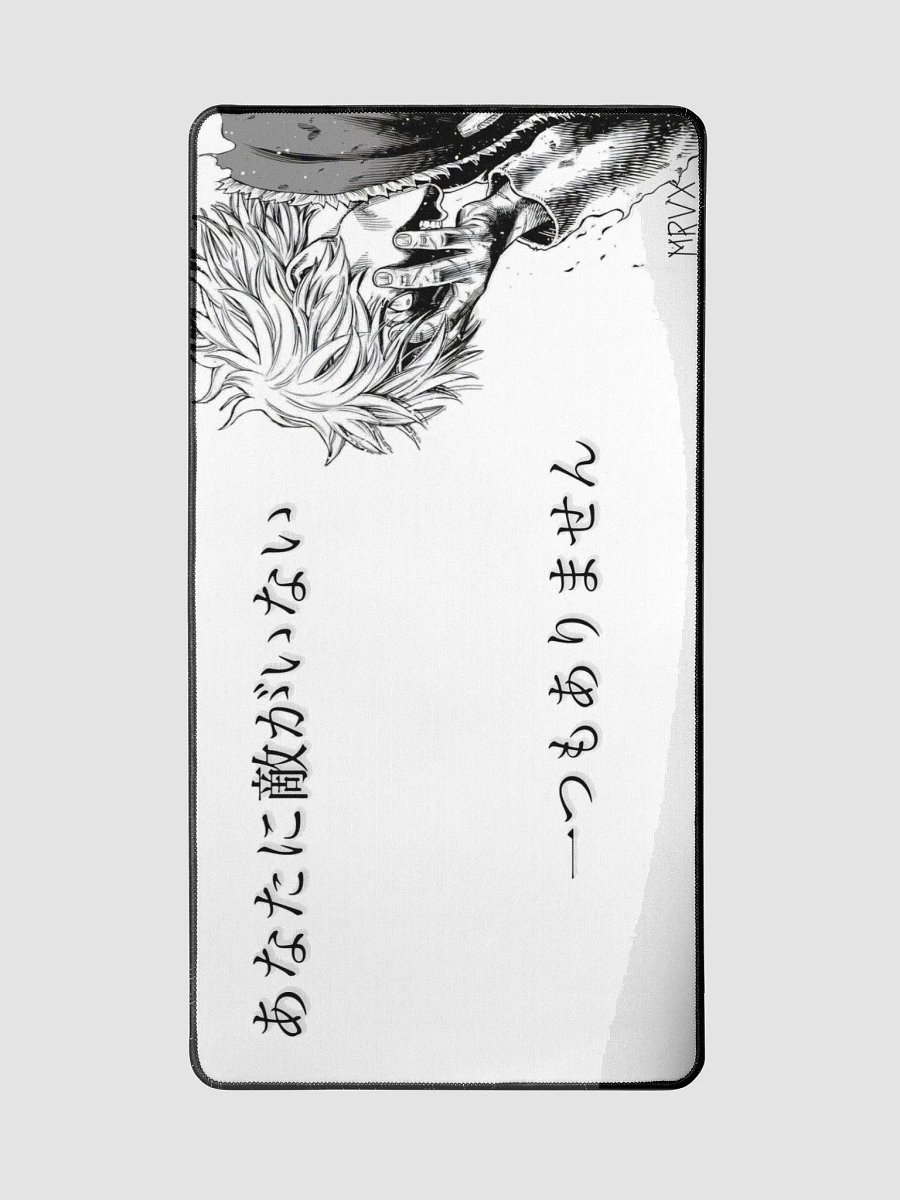 あなたに敵がいない
一つもありません
MRVX